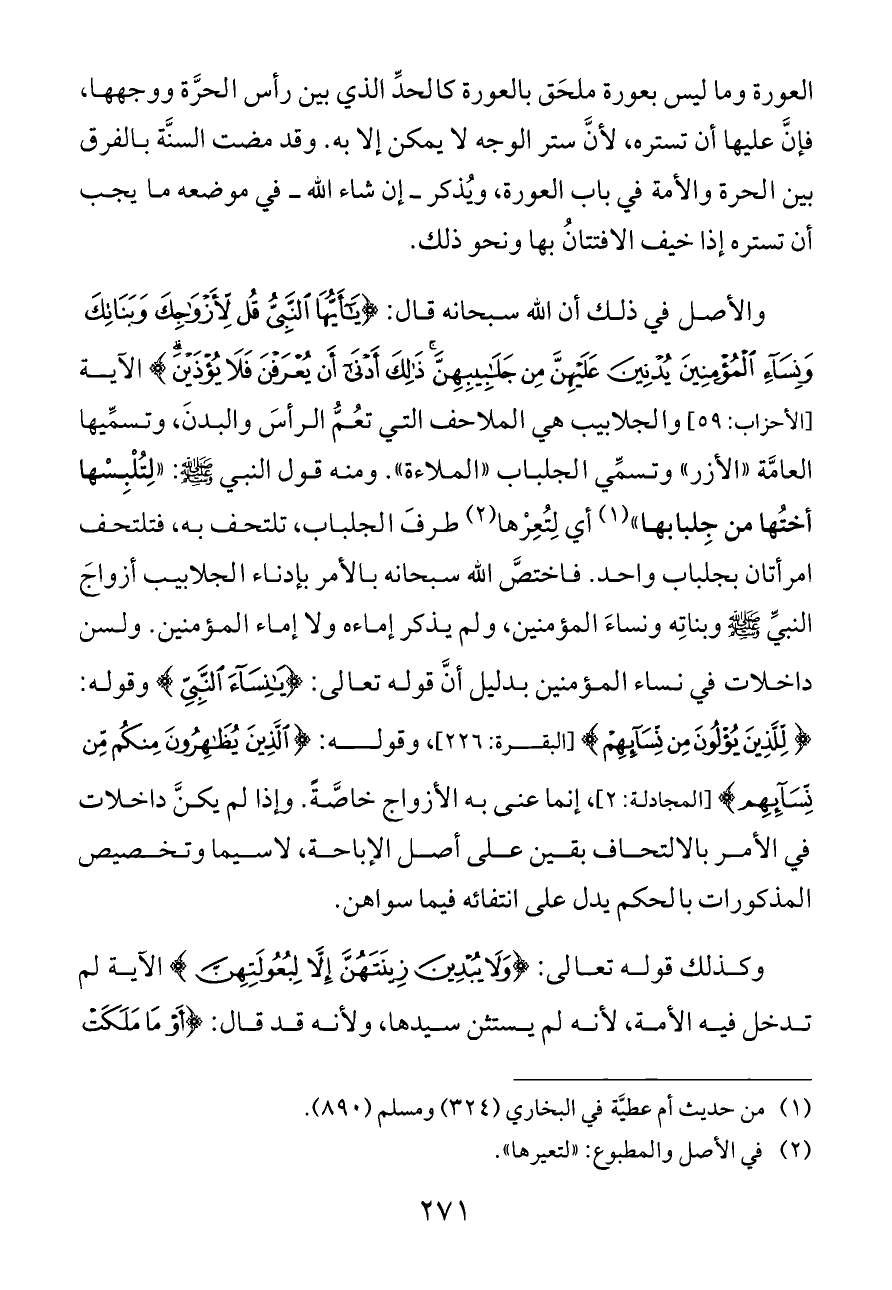 العورة وما ليس بعورة ملحَق بالعورة كالحدِّ الذي بين رأس الحرَّة ووجهها،
فإنَّ عليها أن تستره، لأنَّ ستر الوجه لا يمكن إلا به. وقد مضت السنَّة بالفرق
بين الحرة والأمة في باب العورة، ويُذكر ـ إن شاء الله ـ في موضعه ما يجب
أن تستره إذا خيف الافتتانُ بها ونحو ذلك.
والأصل في ذلك أن الله سبحانه قال: ﴿يَٰٓأَيُّهَا ٱلنَّبِيُّ قُل لِّأَزۡوَٰجِكَ وَبَنَاتِكَ
وَنِسَآءِ ٱلۡمُؤۡمِنِينَ يُدۡنِينَ عَلَيۡهِنَّ مِن جَلَٰبِيبِهِنَّۚ ذَٰلِكَ أَدۡنَىٰٓ أَن يُعۡرَفۡنَ فَلَا يُؤۡذَيۡنَۗ﴾ الآية
[الأحزاب: ٥٩] والجلابيب هي الملاحف التي تعُمُّ الرأسَ والبدنَ، وتسمِّيها
العامَّة «الأزر» وتسمِّي الجلباب «الملاءة». ومنه قول النبي ﷺ: «لِتُلْبِسْها
أختُها من جِلبابها»(١) أي لِتُعِرْها(٢) طرفَ الجلباب، تلتحف به، فتلتحف
امرأتان بجلباب واحد. فاختصَّ الله سبحانه بالأمر بإدناء الجلابيب أزواجَ
النبيِّ ﷺ وبناتِه ونساءَ المؤمنين، ولم يذكر إماءه ولا إماء المؤمنين. ولسن
داخلات في نساء المؤمنين بدليل أنَّ قوله تعالى: ﴿يَٰنِسَآءَ ٱلنَّبِيِّ﴾ وقوله:
﴿لِّلَّذِينَ يُؤۡلُونَ مِن نِّسَآئِهِمۡ﴾ [البقرة: ٢٢٦]، وقوله: ﴿ٱلَّذِينَ يُظَٰهِرُونَ مِنكُم مِّن
نِّسَآئِهِم﴾ [المجادلة: ٢]، إنما عنى به الأزواج خاصَّةً. وإذا لم يكنَّ داخلات
في الأمر بالالتحاف بقين على أصل الإباحة، لاسيما وتخصيص
المذكورات بالحكم يدل على انتفائه فيما سواهن.
وكذلك قوله تعالى: ﴿وَلَا يُبۡدِينَ زِينَتَهُنَّ إِلَّا لِبُعُولَتِهِنَّ﴾ الآية لم
تدخل فيه الأمة، لأنه لم يستثن سيدها، ولأنه قد قال: ﴿أَوۡ مَا مَلَكَتۡ
(١) من حديث أم عطيَّة في البخاري (٣٢٤) ومسلم (٨٩٠).
(٢) في الأصل والمطبوع: «لتعيرها».
٢٧١